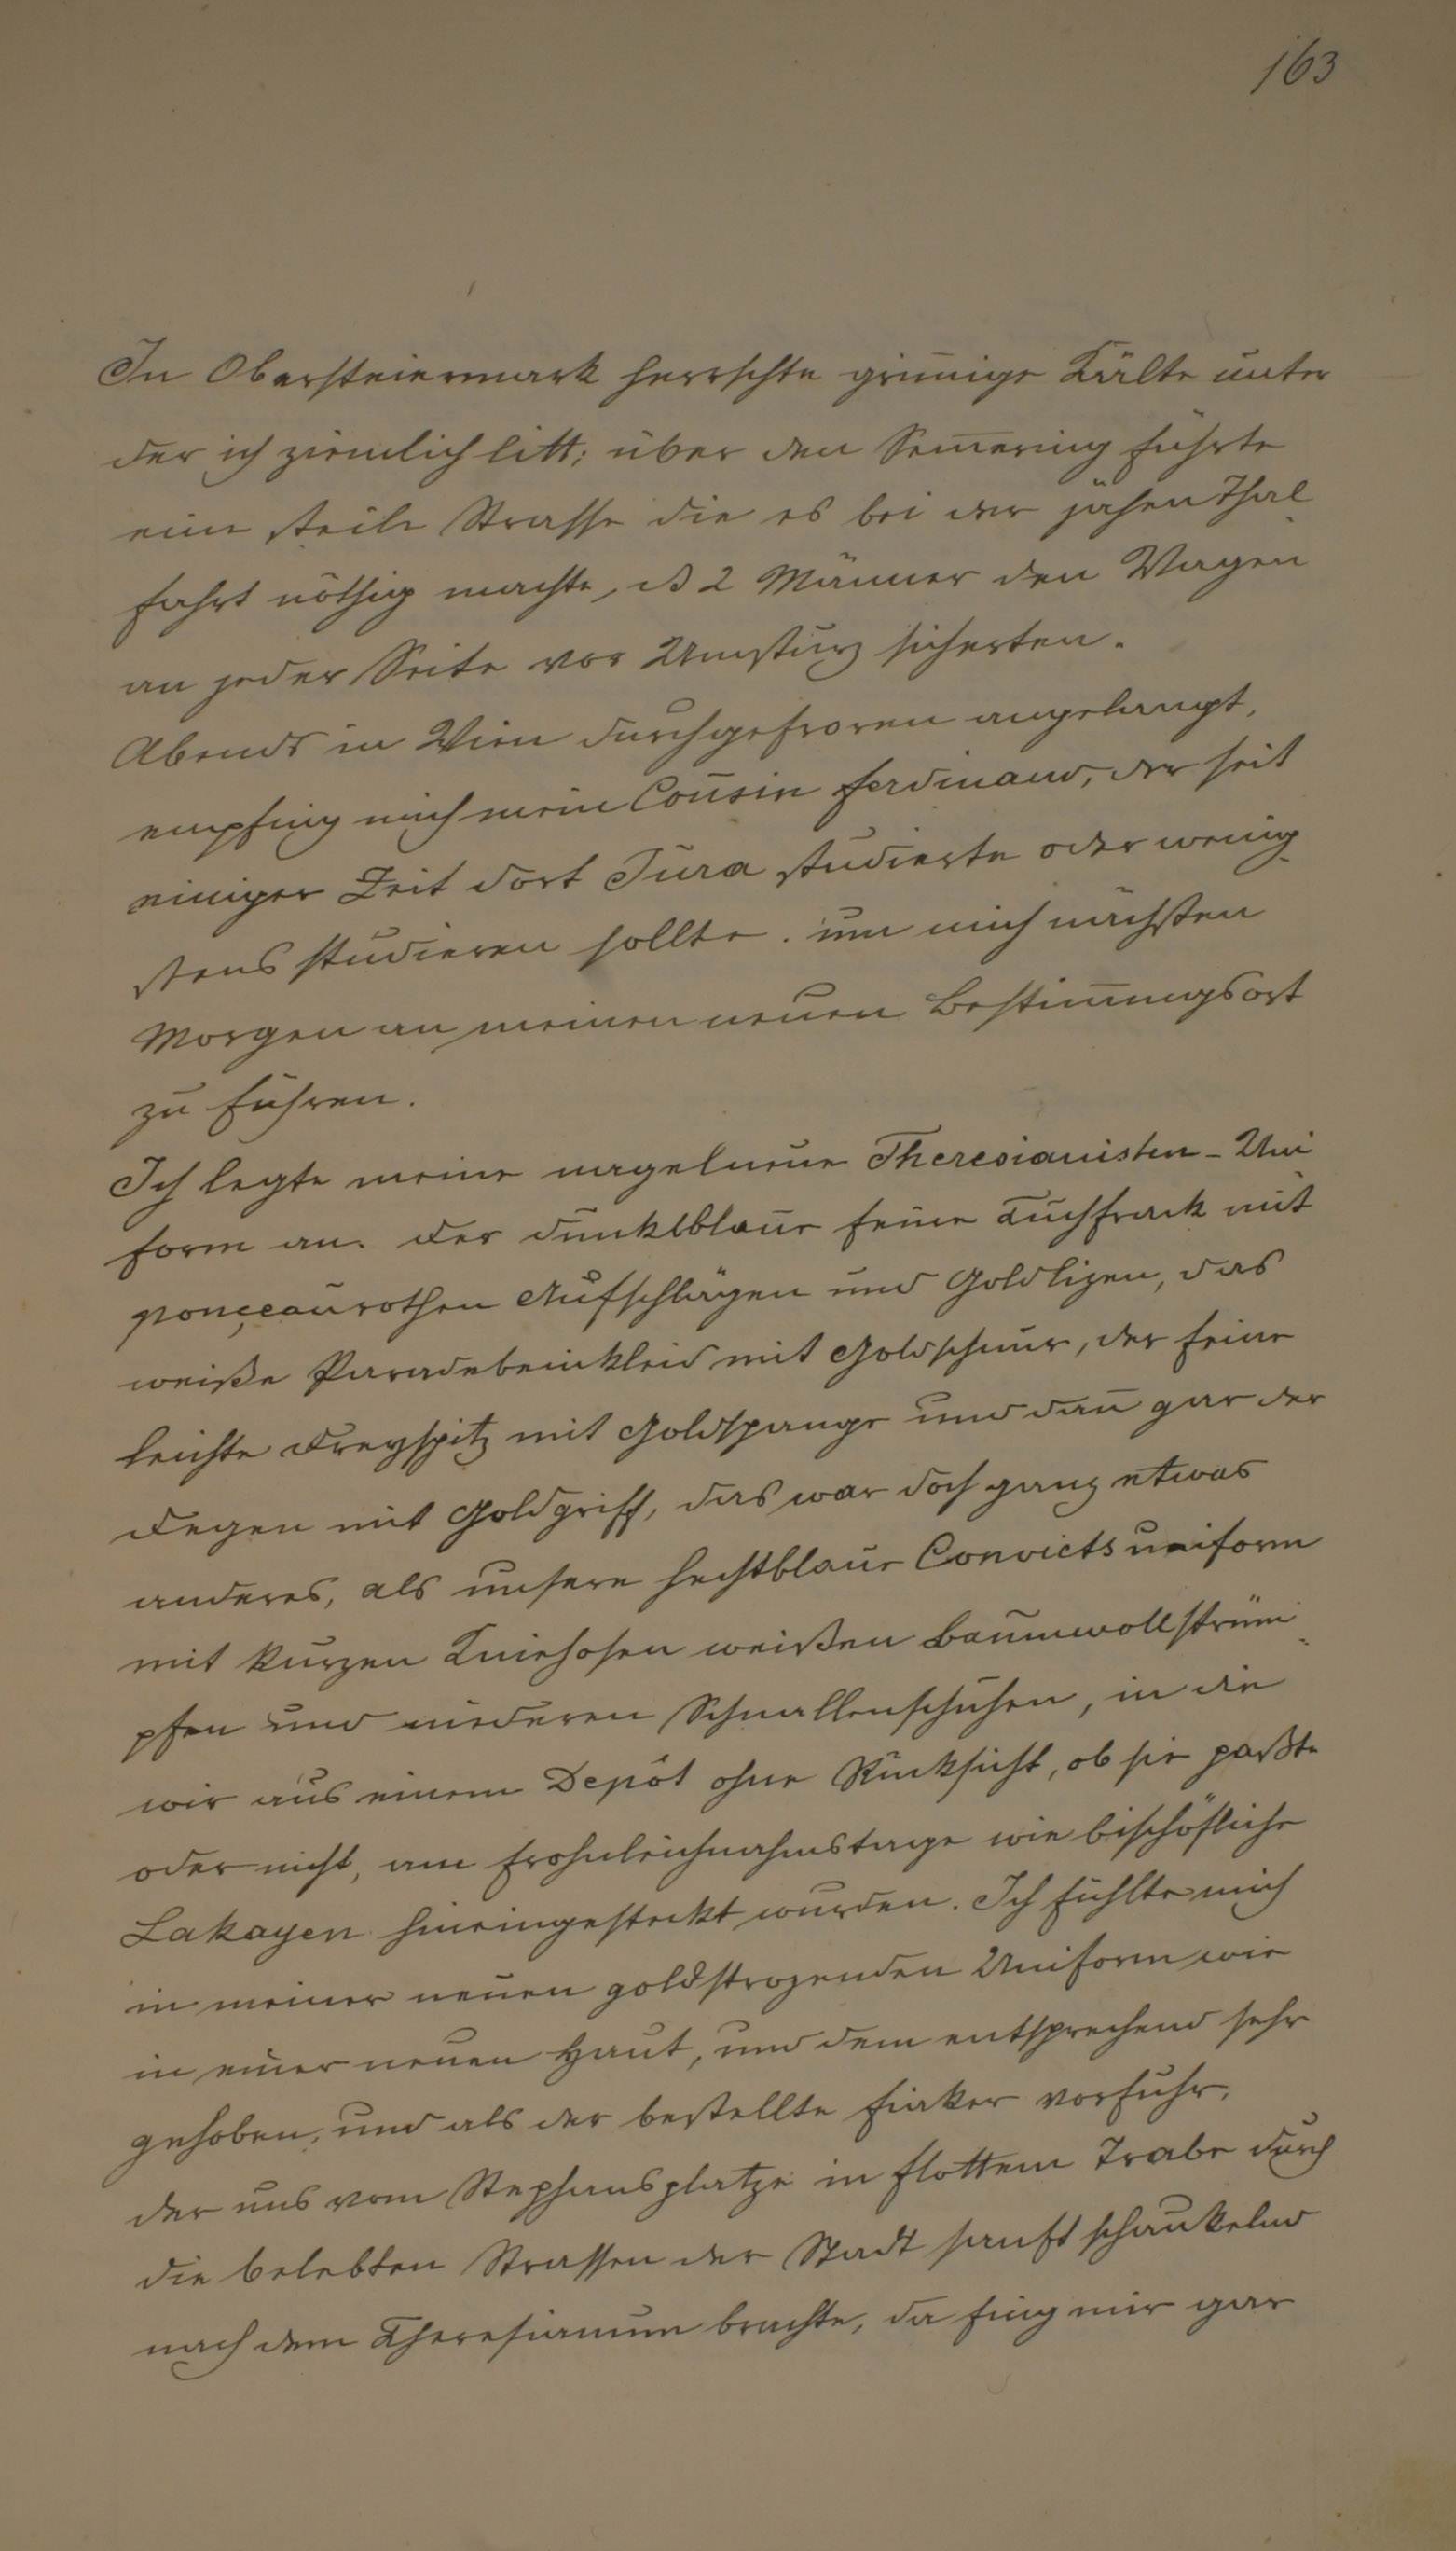 163
In Obersteiermark herrschte grim̅ige Kälte unter
der ich ziemlich litt; über den Sem̅ering führte
eine steile Strasse die es bei der jähen Thal-
fahrt nöthig machte, dß 2 Männer den Wagen
an jeder Seite vor Umsturz sicherten.
Abends in Wien durchgefroren angelangt,
empfing mich mein Cousin Ferdinand, der seit
einiger Zeit dort Jura studierte oder wenig-
stens studieren sollte. um mich nächsten
Morgen an meinen neuen Bestim̅ungsort
zu führen.
Ich legte meine nagelneue Theresianisten-Uni
form an. Der dunkelblaue feine Tuchfrack mit
ponçeaurothen Aufschlägen und Goldlizen, das
weiße Paradebeinkleid mit Goldschnur, der feine
leichte Dreyspitz mit Goldspange und dan̅ gar der
Degen mit Goldgriff, das war doch ganz etwas
anderes, als unsere hechtblaue Convictsuniform
mit kurzen Kniehosen weißen Baumwollstrüm-
pfen und niederen Schnallenschuhen, in die
wir aus einem Depôt ohne Rücksicht, ob sie paßte
oder nicht, am Frohnleichnahmstage wie bischöfliche
Lakayen hineingesteckt wurden. Ich fühlte mich
in meiner neuen goldstrozenden Uniform wie
in einer neuen Haut, und dem entsprechend sehr
gehoben, und als der bestellte Fiaker vorfuhr,
der uns vom Stephansplatze in flottem Trabe durch
die belebten Strassen der Stadt sanft schaukelnd
nach dem Theresianum brachte, da fing mir gar